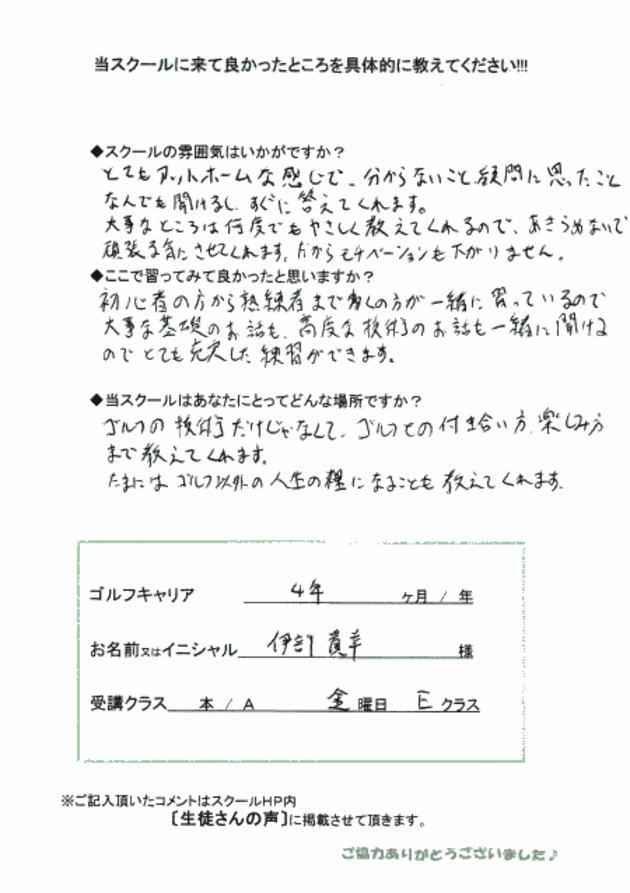 当スクールに来て良かったところを具体的に教えてください!!!
◆スクールの雰囲気はいかがですか？
とてもアットホームな感じで、分からないこと、疑問に思ったこと
なんでも聞けるし、すぐに答えてくれます。
大事なところは何度でもやさしく教えてくれるので、あきらめないで
頑張る気にさせてくれます。だからモチベーションも下がりません。
◆ここで習ってみて良かったと思いますか？
初心者の方から熟練者まで多くの方が一緒に習っているので
大事な基礎のお話も、高度な技術のお話も一緒に聞ける
のでとても充実した練習ができます。
◆当スクールはあなたにとってどんな場所ですか？
ゴルフの技術だけじゃなくて、ゴルフとの付き合い方、楽しみ方
まで教えてくれます。
たまにはゴルフ以外の人生の糧になることも教えてくれます。
ゴルフキャリア 4年 ヶ月 / 年
お名前又はイニシャル 伊 貴幸 様
受講クラス 本 / A 金 曜日 E クラス
※ご記入頂いたコメントはスクールHP内
〔生徒さんの声〕に掲載させて頂きます。
ご協力ありがとうございました♪